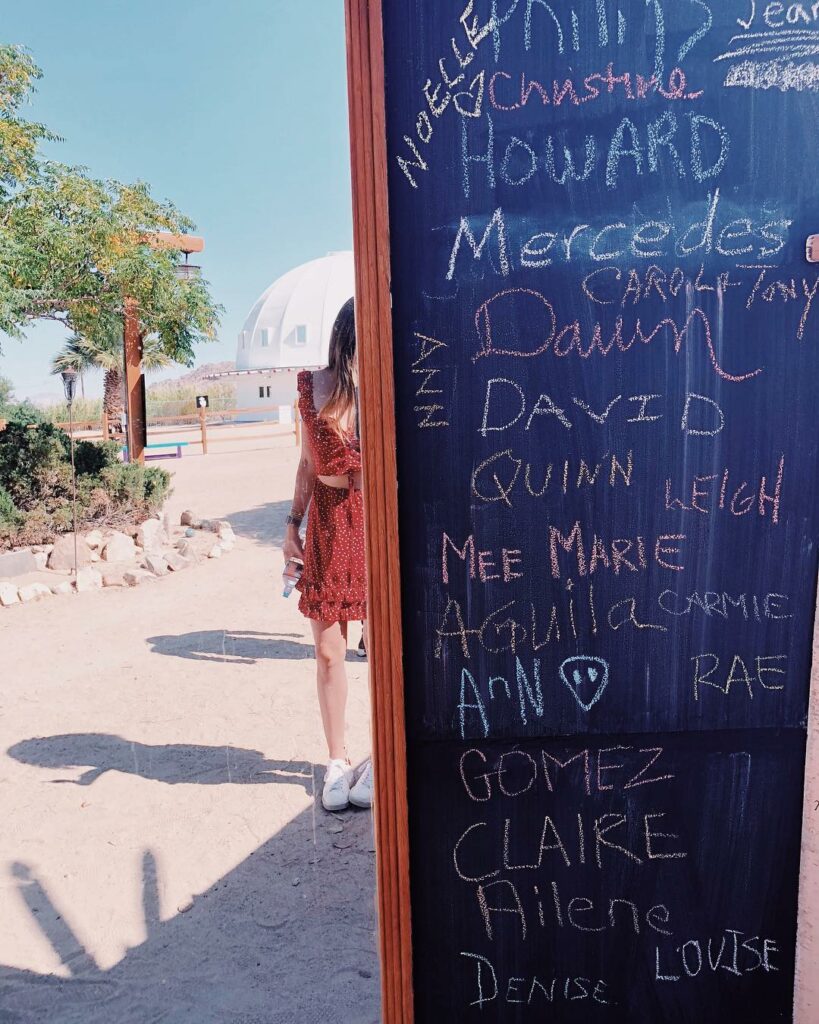 Philip
Jean
NOELLE
Christine
HOWARD
Mercedes
CAROLE TONY
Dawn
ANN
DAVID
QUINN
LEIGH
MEE MARIE
AGUILA
CARMIE
ANN
RAE
GOMEZ
CLAIRE
Ailene
LOUISE
DENISE